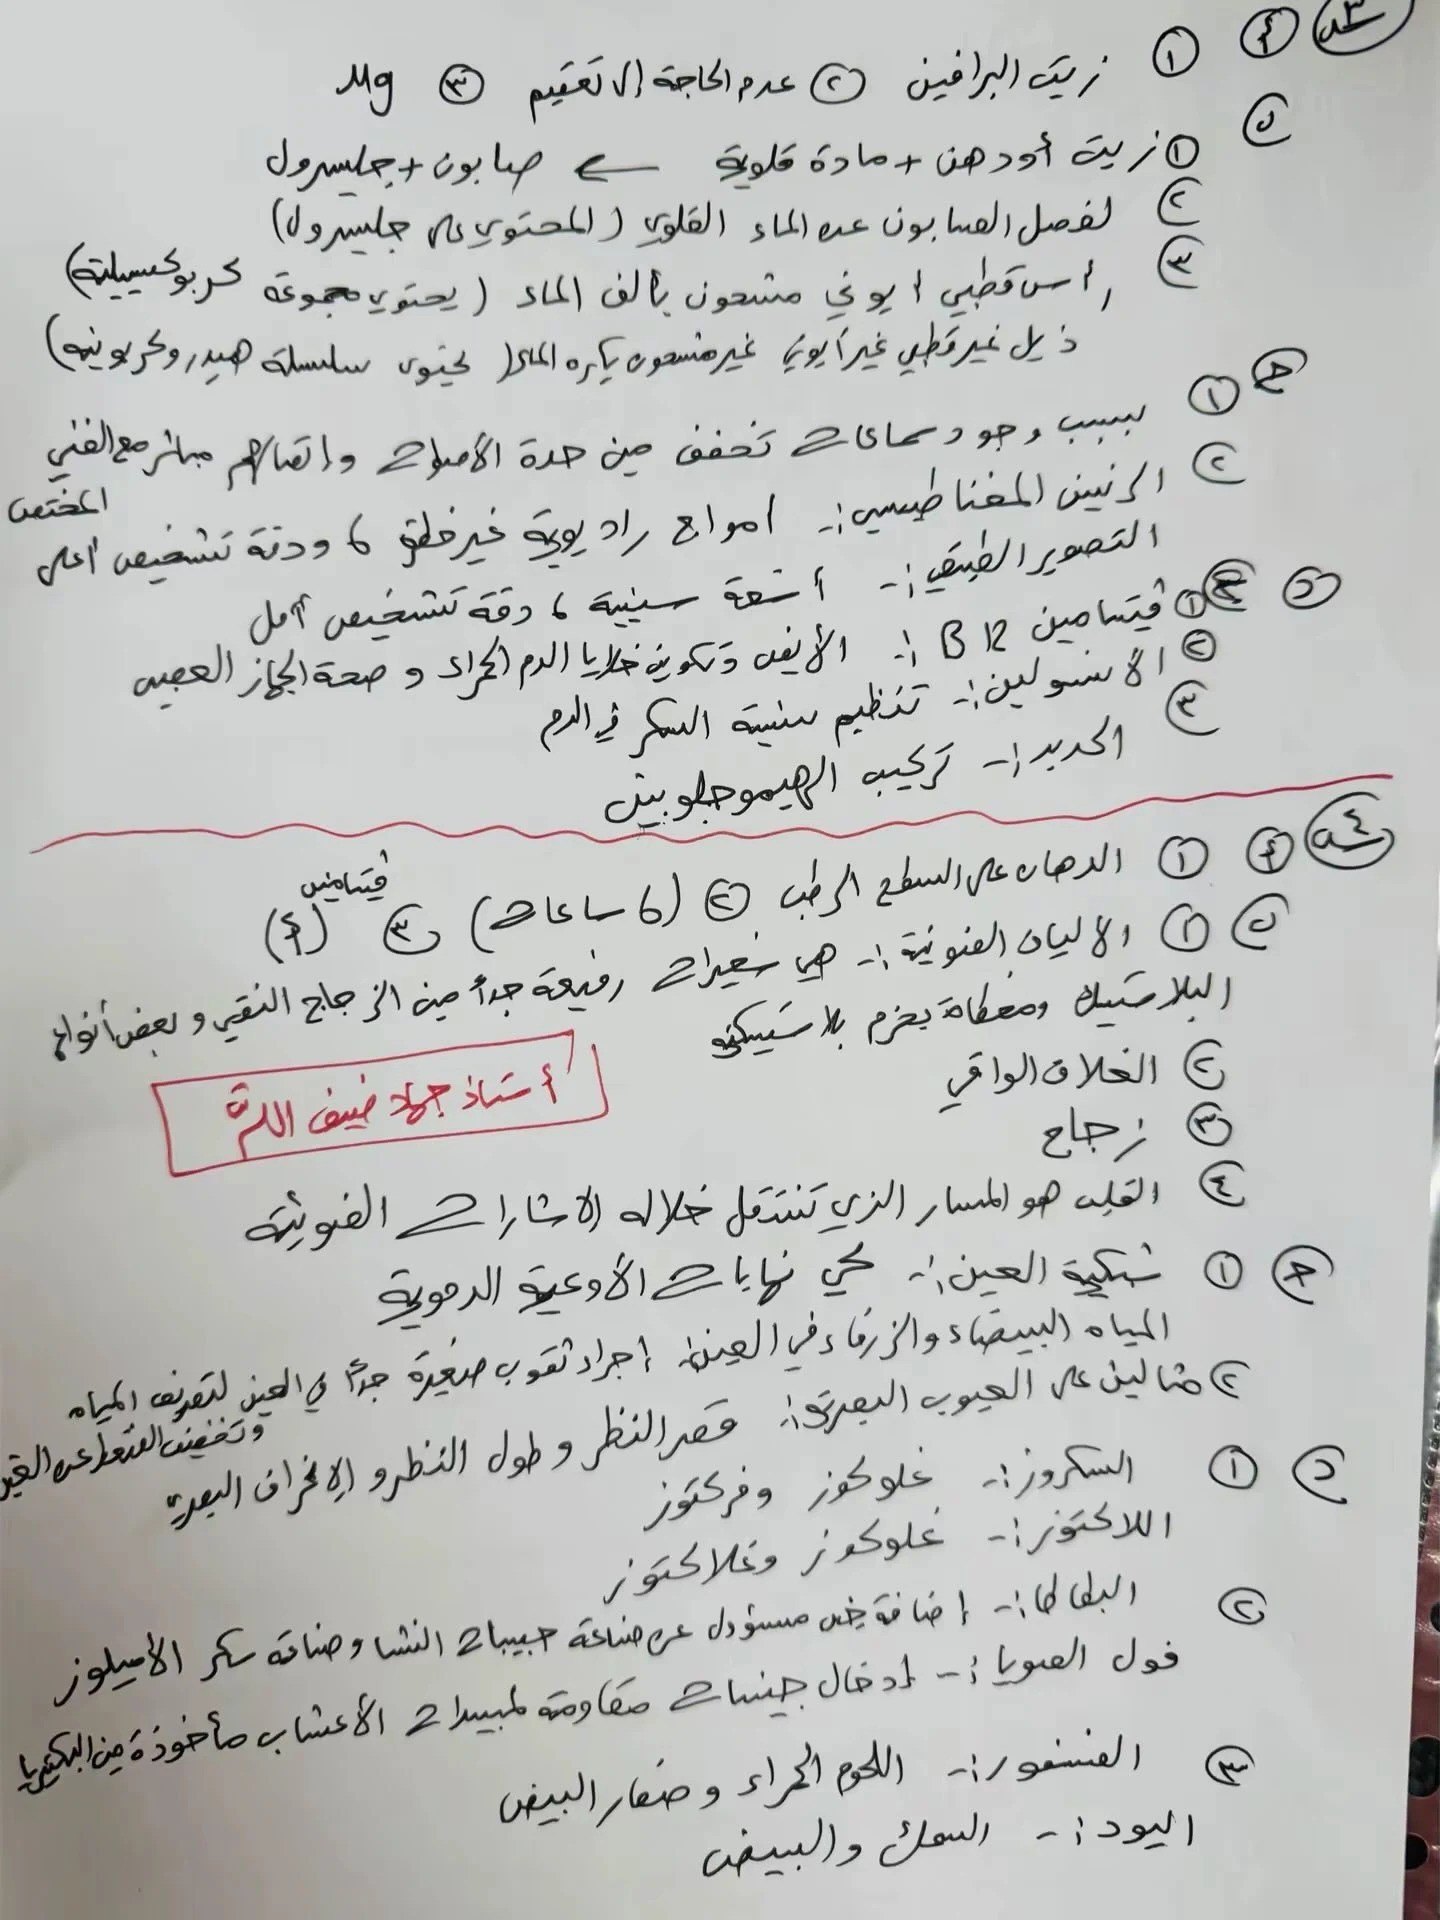 س٣ أ ① زيت البرافين ② عدم الحاجة إلى تعقيم ③ Mg
ب
① زيت أو دهن + مادة قلوية ← صابون + جليسرول
② لفصل الصابون عن الماء القلوي (المحتوي على جليسرول)
③ رأس قطبي أيوني مشحون يألف الماء (يحتوي مجموعة كربوكسيلية)
ذيل غير قطبي غير أيوني غير مشحون يكره الماء (يحتوي سلسلة هيدروكربونية)
ج ① بسبب وجود سماعات تخفف من حدة الأصوات واتصالهم مباشر مع الفني
المختص
② الرنين المغناطيسي :- امواج راديوية غير خطرة ، ودقة تشخيص أعلى
التصوير الطبقي :- أشعة سينية ، دقة تشخيص أقل
د ① فيتامين B12 :- الأيض وتكوين خلايا الدم الحمراء وصحة الجهاز العصبي
② الأنسولين :- تنظيم نسبة السكر في الدم
③ الحديد :- تركيب الهيموجلوبين
س٤ أ ① الدهان على السطح الرطب ② (6 ساعات) ③ فيتامين (أ)
ب ① الالياف الضوئية :- هي شعيرات رفيعة جداً من الزجاج النقي وبعض أنواع
البلاستيك ومغطاة بحزم بلاستيكية
② الغلاف الواقي
③ زجاج
أستاذ جهاد ضيف الله
④ القلب هو المسار الذي تنتقل خلاله الاشارات الضوئية
ج ① شبكية العين :- كي نهايات الأوعية الدموية
المياه البيضاء والزرقاء في العين :- إجراء ثقوب صغيرة جداً في العين لتصريف المياه
وتخفيف الضغط عن
② مثالين على العيوب البصرية :- قصر النظر وطول النظر والإنحراف البصري
د ① السكروز :- غلوكوز وفركتوز
اللاكتوز :- غلوكوز وغلاكتوز
② البطاطا :- إضافة جين مسؤول عن صناعة حبيبات النشا وصناعة سكر الأميلوز
فول الصويا :- إدخال جينات مقاومة لمبيدات الأعشاب مأخوذة من البكتيريا
③ الفسفور :- اللحوم الحمراء وصفار البيض
اليود :- السمك والبيض